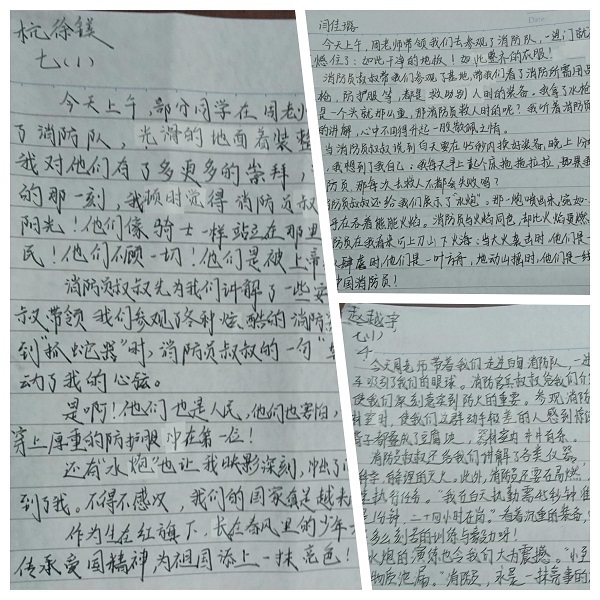 杭徐鎂
七(1)
今天上午,部分同学在周老
了消防队,光滑的地面着装整
我对他们有了多更多的崇拜,
的那一刻,我顿时觉得消防员叔
阳光!他们像骑士一样站立在那里
民!他们不顾一切!他们是被上帝
消防员叔叔先为我们讲解了一些
叔带领我们参观了各种炫酷的消防
到“抓蛇器”时,消防员叔叔的一句
动了我的心弦。
是啊!他们也是人民,他们也害怕,
穿上厚重的防护服冲在第一位!
还有“水炮”也让我映影深刻,冲出了
到了我。不得不感叹,我们的国家真是越
作为生在红旗下,长在春风里的少年
传承爱国精神为祖国添上一抹亮色!
闫佳璐
今天上午,周老师带领我们去参观了消防队,一进门就
惊住了:如此干净的地板!如此整齐的衣服!
消防员叔叔带我们参观了基地,带我们看了消防所需用品
枪、防护服等,都是救助别人时的装备。我拿了水枪
是一个头就那么重,那消防员救人时的呢?我听着消防员
的讲解,心中不由得升起一股敬佩之情。
当消防员叔叔说到白天要在45秒内换好装备,晚上1分
,我想到了我自己:我每天早上起个床拖拖拉拉,如果我
防员,那每次去救人不都会失败吗?
消防员叔叔还给我们展示了“水炮”,那一炮喷出来,宛如
乎在吞着熊熊火焰。消防员与火焰同色,却比火焰更燃
防员在我看来可上刀山下火海:当大火袭击时他们是
肆虐时他们是一叶方舟,地动山摇时,他们是一线
中国消防员!
赵越宇
七(1)
今天周老师带着我们走进白鬼消防队,一进
吸引了我们的眼球。消防官兵叔叔给我们介
使我们深刻意实到防火的重要。参观消防
时,使我们这群动手较差的人感到惊
子都叠成了豆腐块,器科室内井井有条。
消防员叔叔还给我们讲解了各类仪器
此外,消防员还要在高燃
执行任务。“我们白天执勤需45秒钟
1分钟,二十四小时在岗。”看着沉重的装备,
么刻苦的训练与劳动呀!
水炮的演练也令我们大为震撼。
物质泄漏。”消防员,永是一抹亮喜的